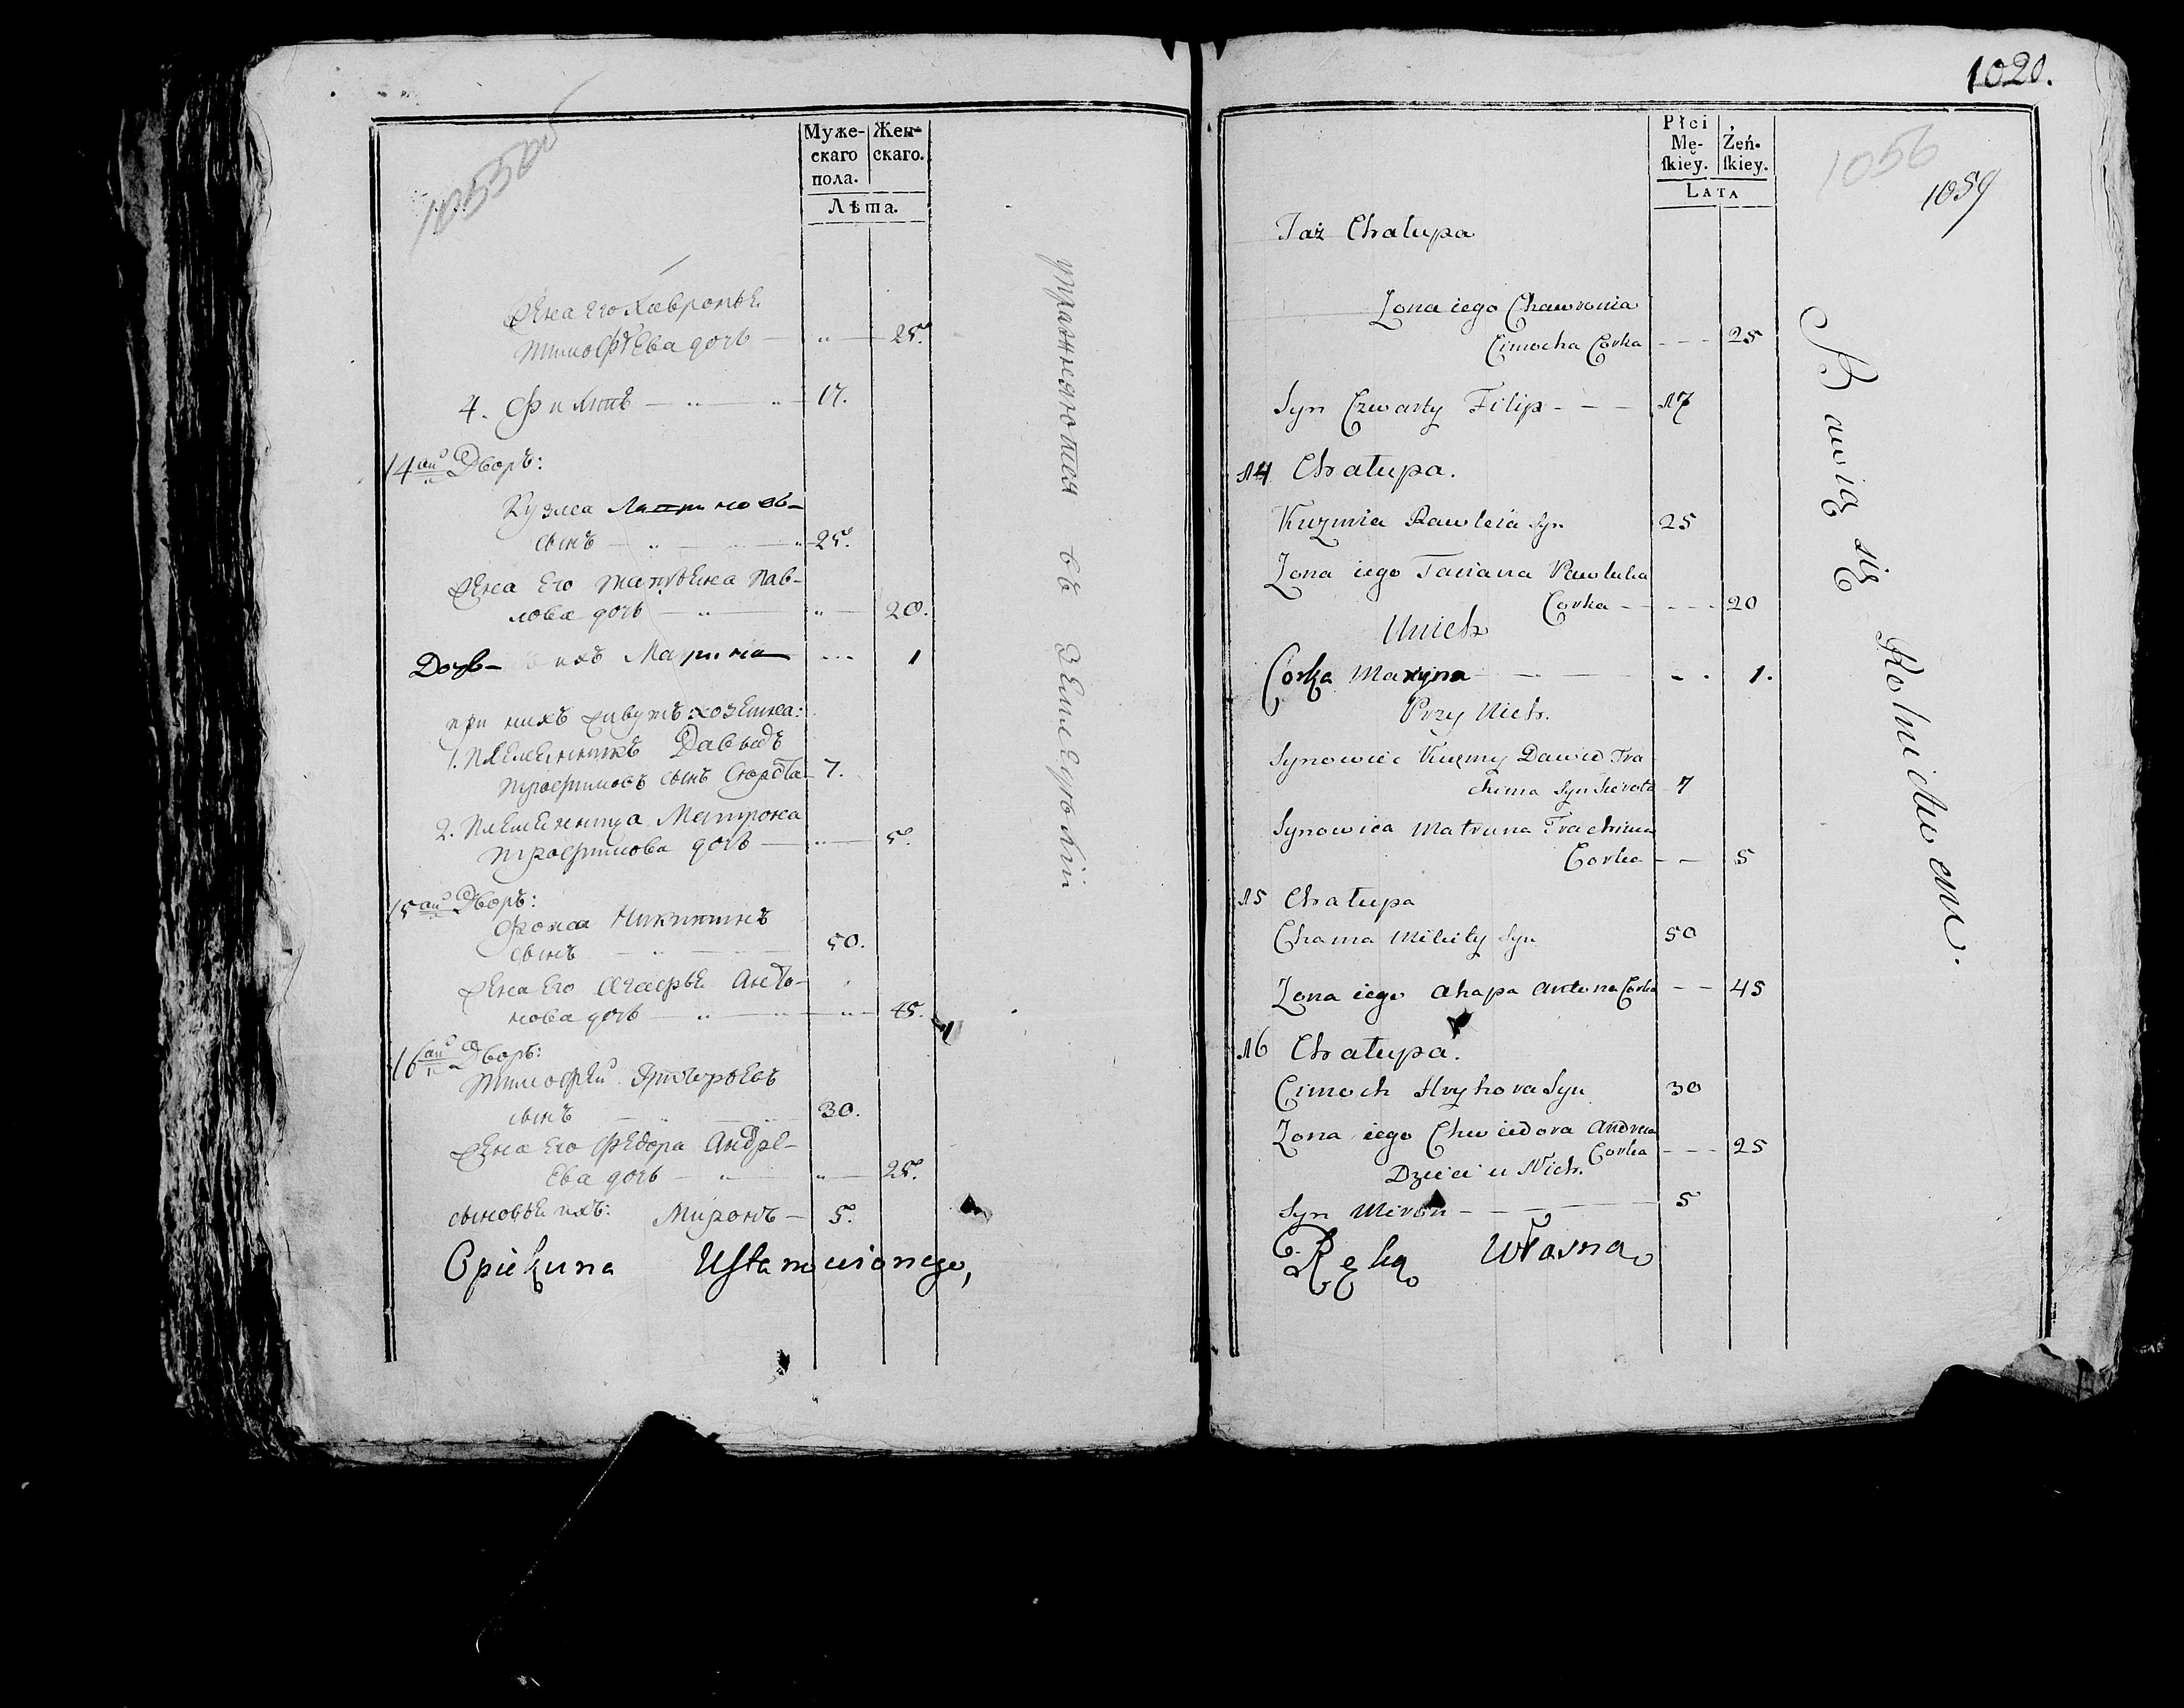 1055 об
Муже-
скаго
пола.
Жен-
скаго.
Лѣта.
Жена Его Хавронья
тимофѣева дочь — „ — 25.
4. Филипъ — „ — „ — 17.
14ый Дворъ:
Кузма
сынъ — „ — „ 25.
Жена Его татьяна Пав-
лова дочь — „ — „ — 20.
Дочь их Марина --- 1
при нихъ живутъ:
1. Племенникъ Давыдъ
трофимовъ сынъ Сирота 7.
2. Племенница Матрона
трофимова дочь — „ — 5.
15ый Дворъ:
Фома Никитинъ
сынъ — „ — 50.
Жена Его Агафья Анто-
нова дочь — „ — „ — „ — 45.
16ый Дворъ:
тимофей Григорьевъ
сынъ 30.
Жена Его Федора Андре-
ева дочь — „ — „ — 25.
сыновья ихъ: Миронъ — 5.
Opiekuna Ustanowionego,
упражняются въ Земледеліи
1020.
Płci
Mę-
ſkiey.
Żeń-
ſkiey.
LATA
1056
1059
Taż Chałupa
Zona iego Chawronia
Cimocha Corka - - - 25
Syn Czwarty Filip - - - 17
14 Chałupa.
Kuzmia Pawleia Syn 25
Zona iego Taciana Pawluka
Corka - - - - 20
U nich
Corka Maryna - - - - 1.
Przy Nich.
Synowiec Kuzmy Dawid Tra
chima Syn Sierota 7
Synowica Matruna Trachima
Corka - - 5
15 Chałupa
Chama Mikity Syn 50
Zona iego Ahapa Antona Corka - - 45
16 Chałupa.
Cimoch Hryhora Syn 30
Zona iego Chwiedora Andreia
Corka - - - 25
Dzieci u Nich.
Syn Miron - - - - 5
Ręką Własną
Bawią się Rolnictwem.